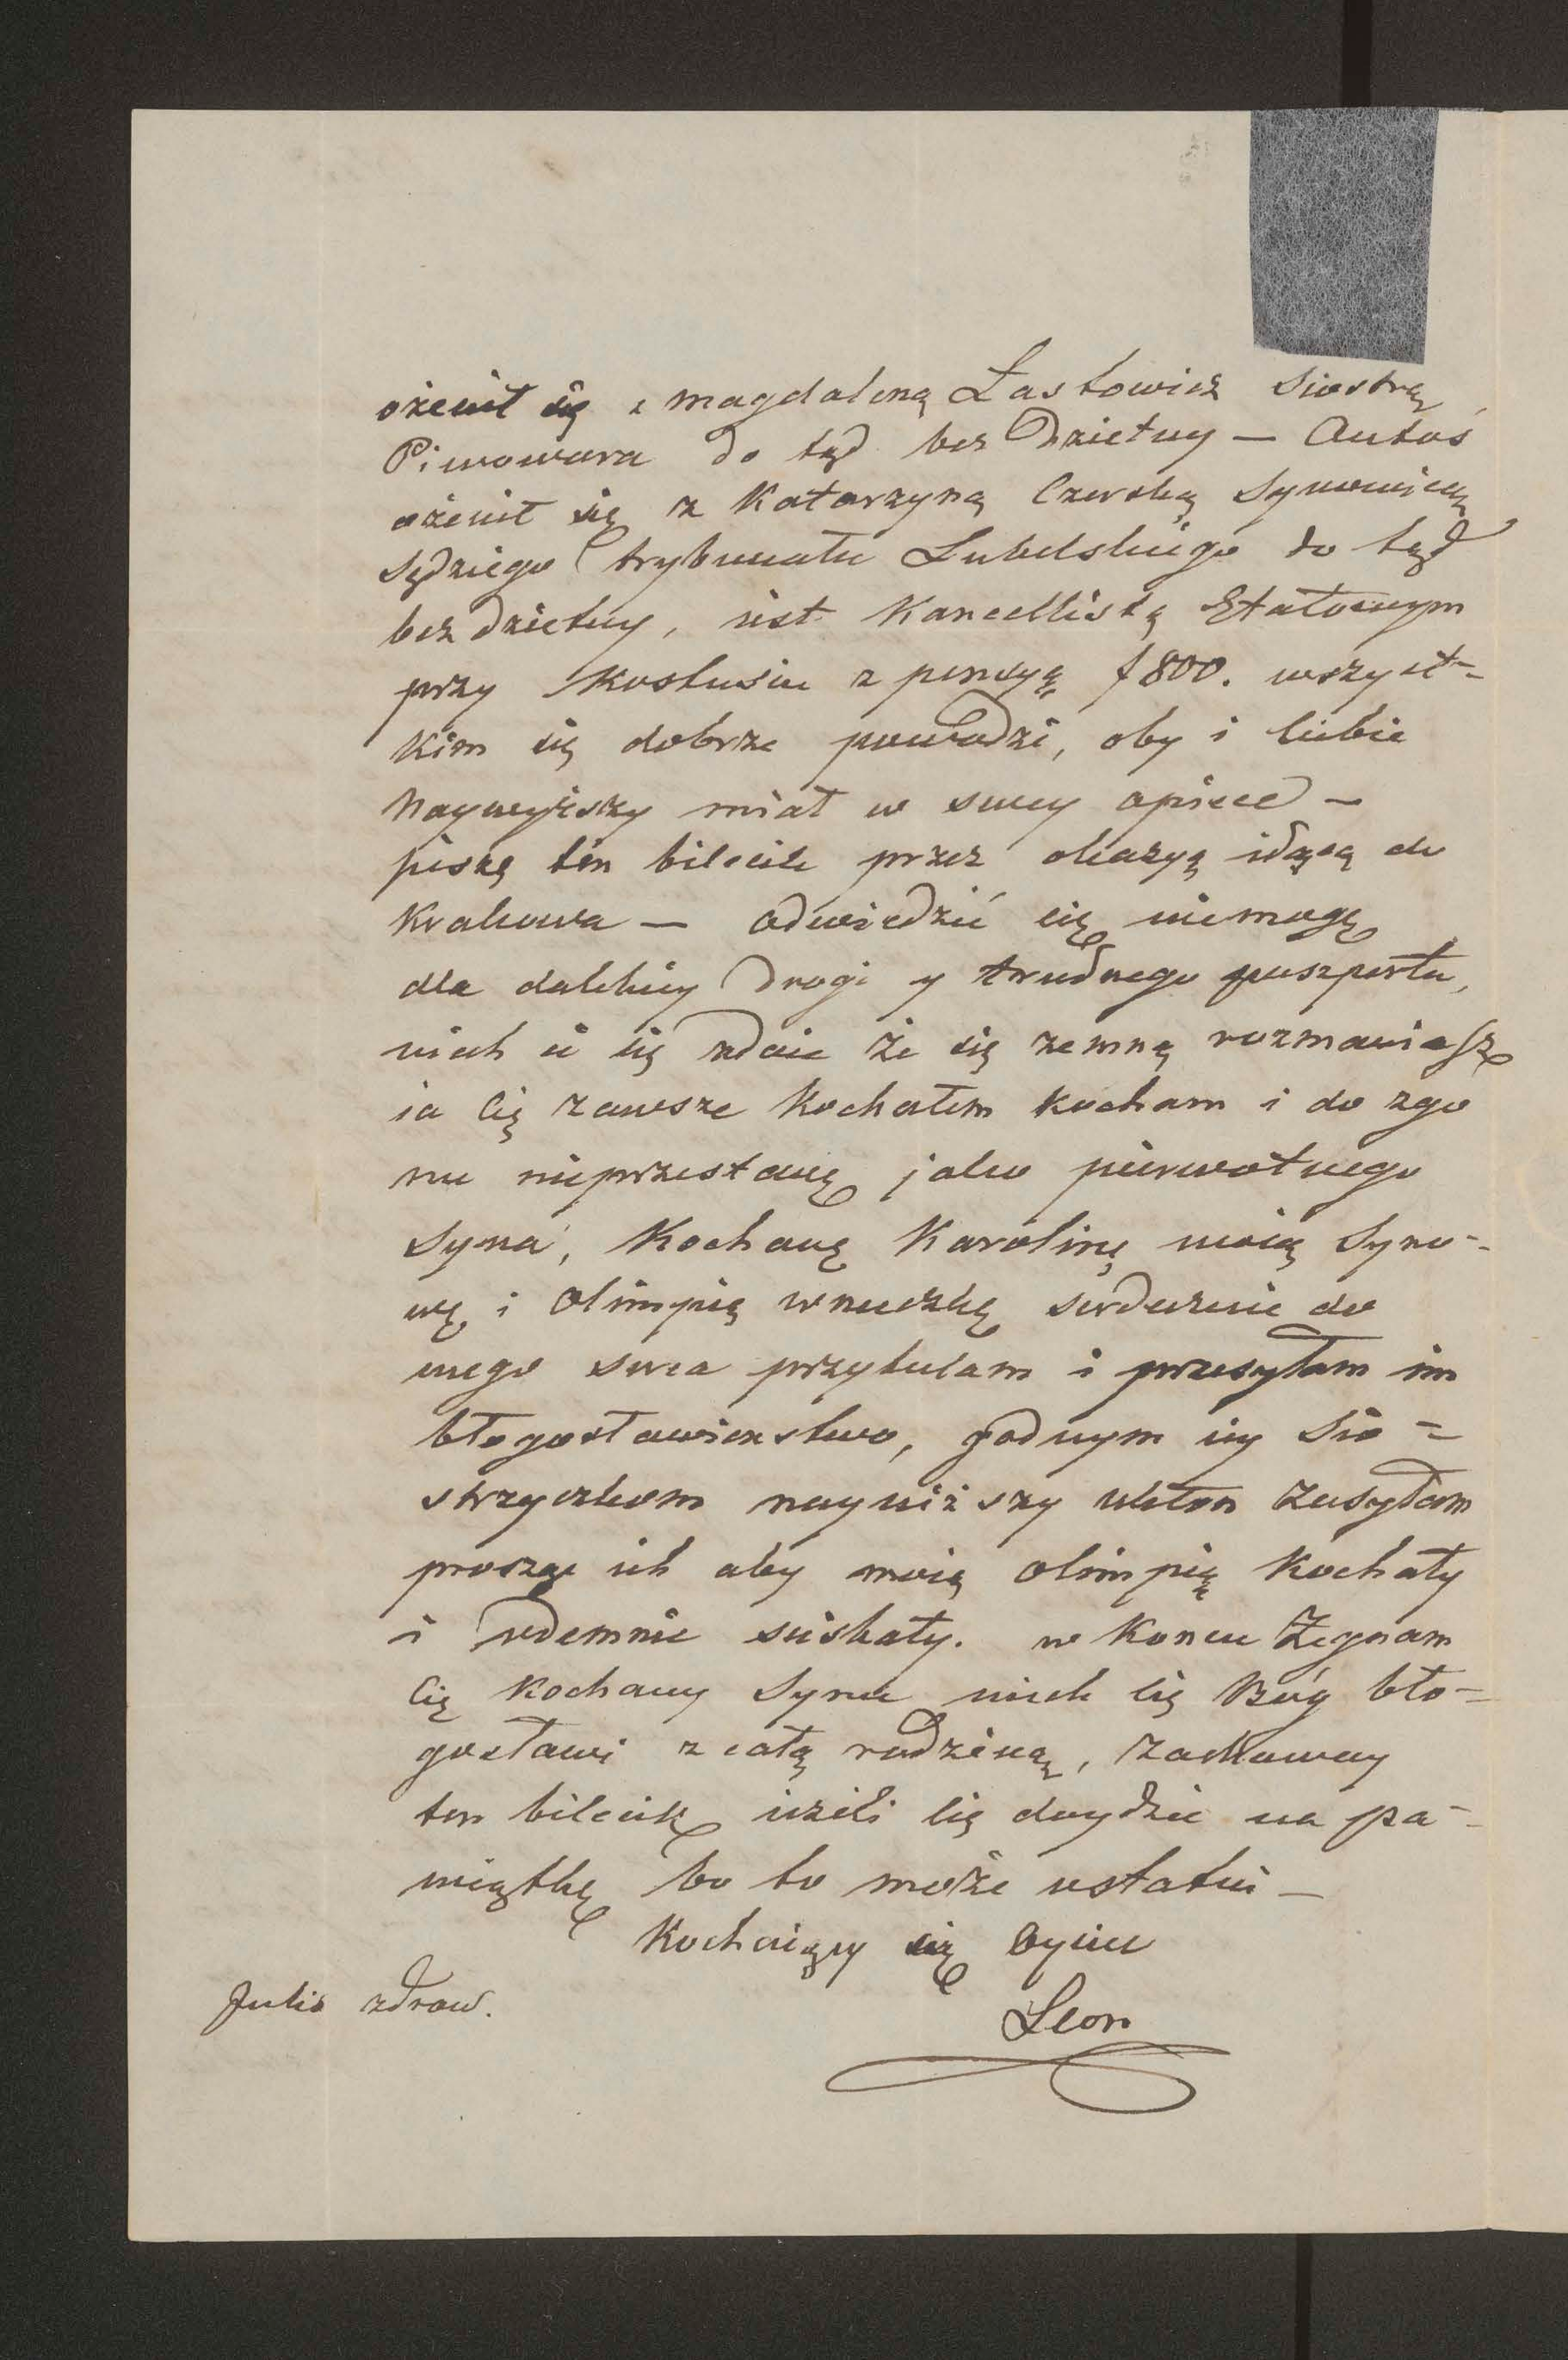 ożenił się z Magdaleną Łastowicz Siostrą
Piwowara do tąd bez Dzietny — Antoś
ożenił się z Katarzyną Czerską Synowicą
Sędziego trybunału Lubelskiego do tąd
bez dzietny, iest Kancellistą Etatowym
przy Kostusiu z pensyą f 800. wszyst-
kim się dobrze powodzi, oby i Ciebie
Naywyższy miał w swey opiece —
piszę ten bilecik przez okazyą idącą do
Krakowa — odwiedzić cię niemogę
dla dalekiey Drogi y trudnego paszportu,
niech ci się zdaie że się zemną rozmawiasz
ia Cię zawsze Kochałem kocham i do zgo
nu nieprzestanę jako pierwotnego
Syna, Kochaną Karolinę moią Syno-
wę i Olimpię wnuczkę serdecznie do
mego serca przytulam i przesyłam im
błogosławienstwo, godnym iey Sio=
strzyczkom nayniższy ukłon Zasyłam
proszę ich aby moią Olimpię Kochały
i odemnie sciskały. w Koncu Żegnam
Cię Kochany Synu niech cię Bóg bło=
gosławi z całą rodziną, Zachoway
ten bilecik ieżeli cię doydzie na pa-
miątkę bo to może ostatni —
Kochaiący cię Oyciec
Julia zdrow.
Leon